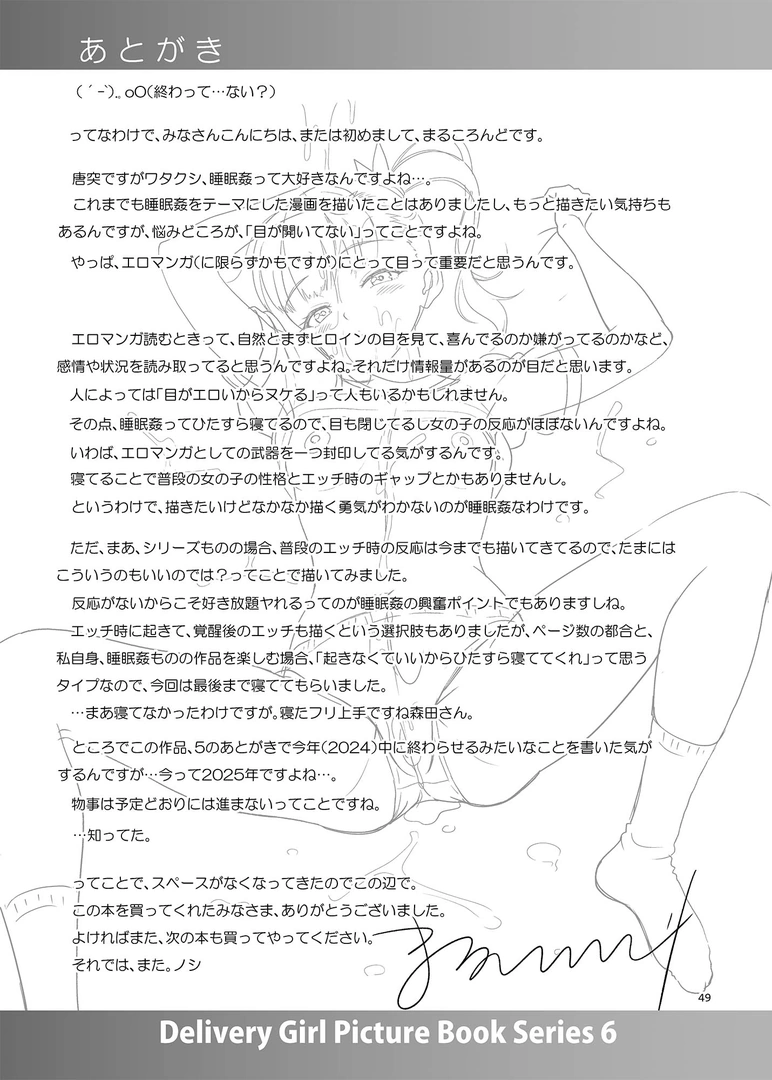 あとがき
(´-`).｡oO(終わって…ない？)
ってなわけで、みなさんこんにちは、または初めまして、まるころんどです。
唐突ですがワタクシ、睡眠姦って大好きなんですよね…。
これまでも睡眠姦をテーマにした漫画を描いたことはありましたし、もっと描きたい気持ちも
あるんですが、悩みどころが、「目が開いてない」ってことですよね。
やっぱ、エロマンガ(に限らずかもですが)にとって目って重要だと思うんです。
エロマンガ読むときって、自然とまずヒロインの目を見て、喜んでるのか嫌がってるのかなど、
感情や状況を読み取ってると思うんですよね。それだけ情報量があるのが目だと思います。
人によっては「目がエロいからヌケる」って人もいるかもしれません。
その点、睡眠姦ってひたすら寝てるので、目も閉じてるし女の子の反応がほぼないんですよね。
いわば、エロマンガとしての武器を一つ封印してる気がするんです。
寝てることで普段の女の子の性格とエッチ時のギャップとかもありませんし。
というわけで、描きたいけどなかなか描く勇気がわかないのが睡眠姦なわけです。
ただ、まあ、シリーズものの場合、普段のエッチ時の反応は今までも描いてきてるので、たまには
こういうのもいいのでは？ってことで描いてみました。
反応がないからこそ好き放題ヤれるってのが睡眠姦の興奮ポイントでもありますしね。
エッチ時に起きて、覚醒後のエッチも描くという選択肢もありましたが、ページ数の都合と、
私自身、睡眠姦ものの作品を楽しむ場合、「起きなくていいからひたすら寝ててくれ」って思う
タイプなので、今回は最後まで寝ててもらいました。
…まあ寝てなかったわけですが。寝たフリ上手ですね森田さん。
ところでこの作品、5のあとがきで今年(2024)中に終わらせるみたいなことを書いた気が
するんですが…今って2025年ですよね…。
物事は予定どおりには進まないってことですね。
…知ってた。
ってことで、スペースがなくなってきたのでこの辺で。
この本を買ってくれたみなさま、ありがとうございました。
よければまた、次の本も買ってやってください。
それでは、また。ノシ
49
Delivery Girl Picture Book Series 6